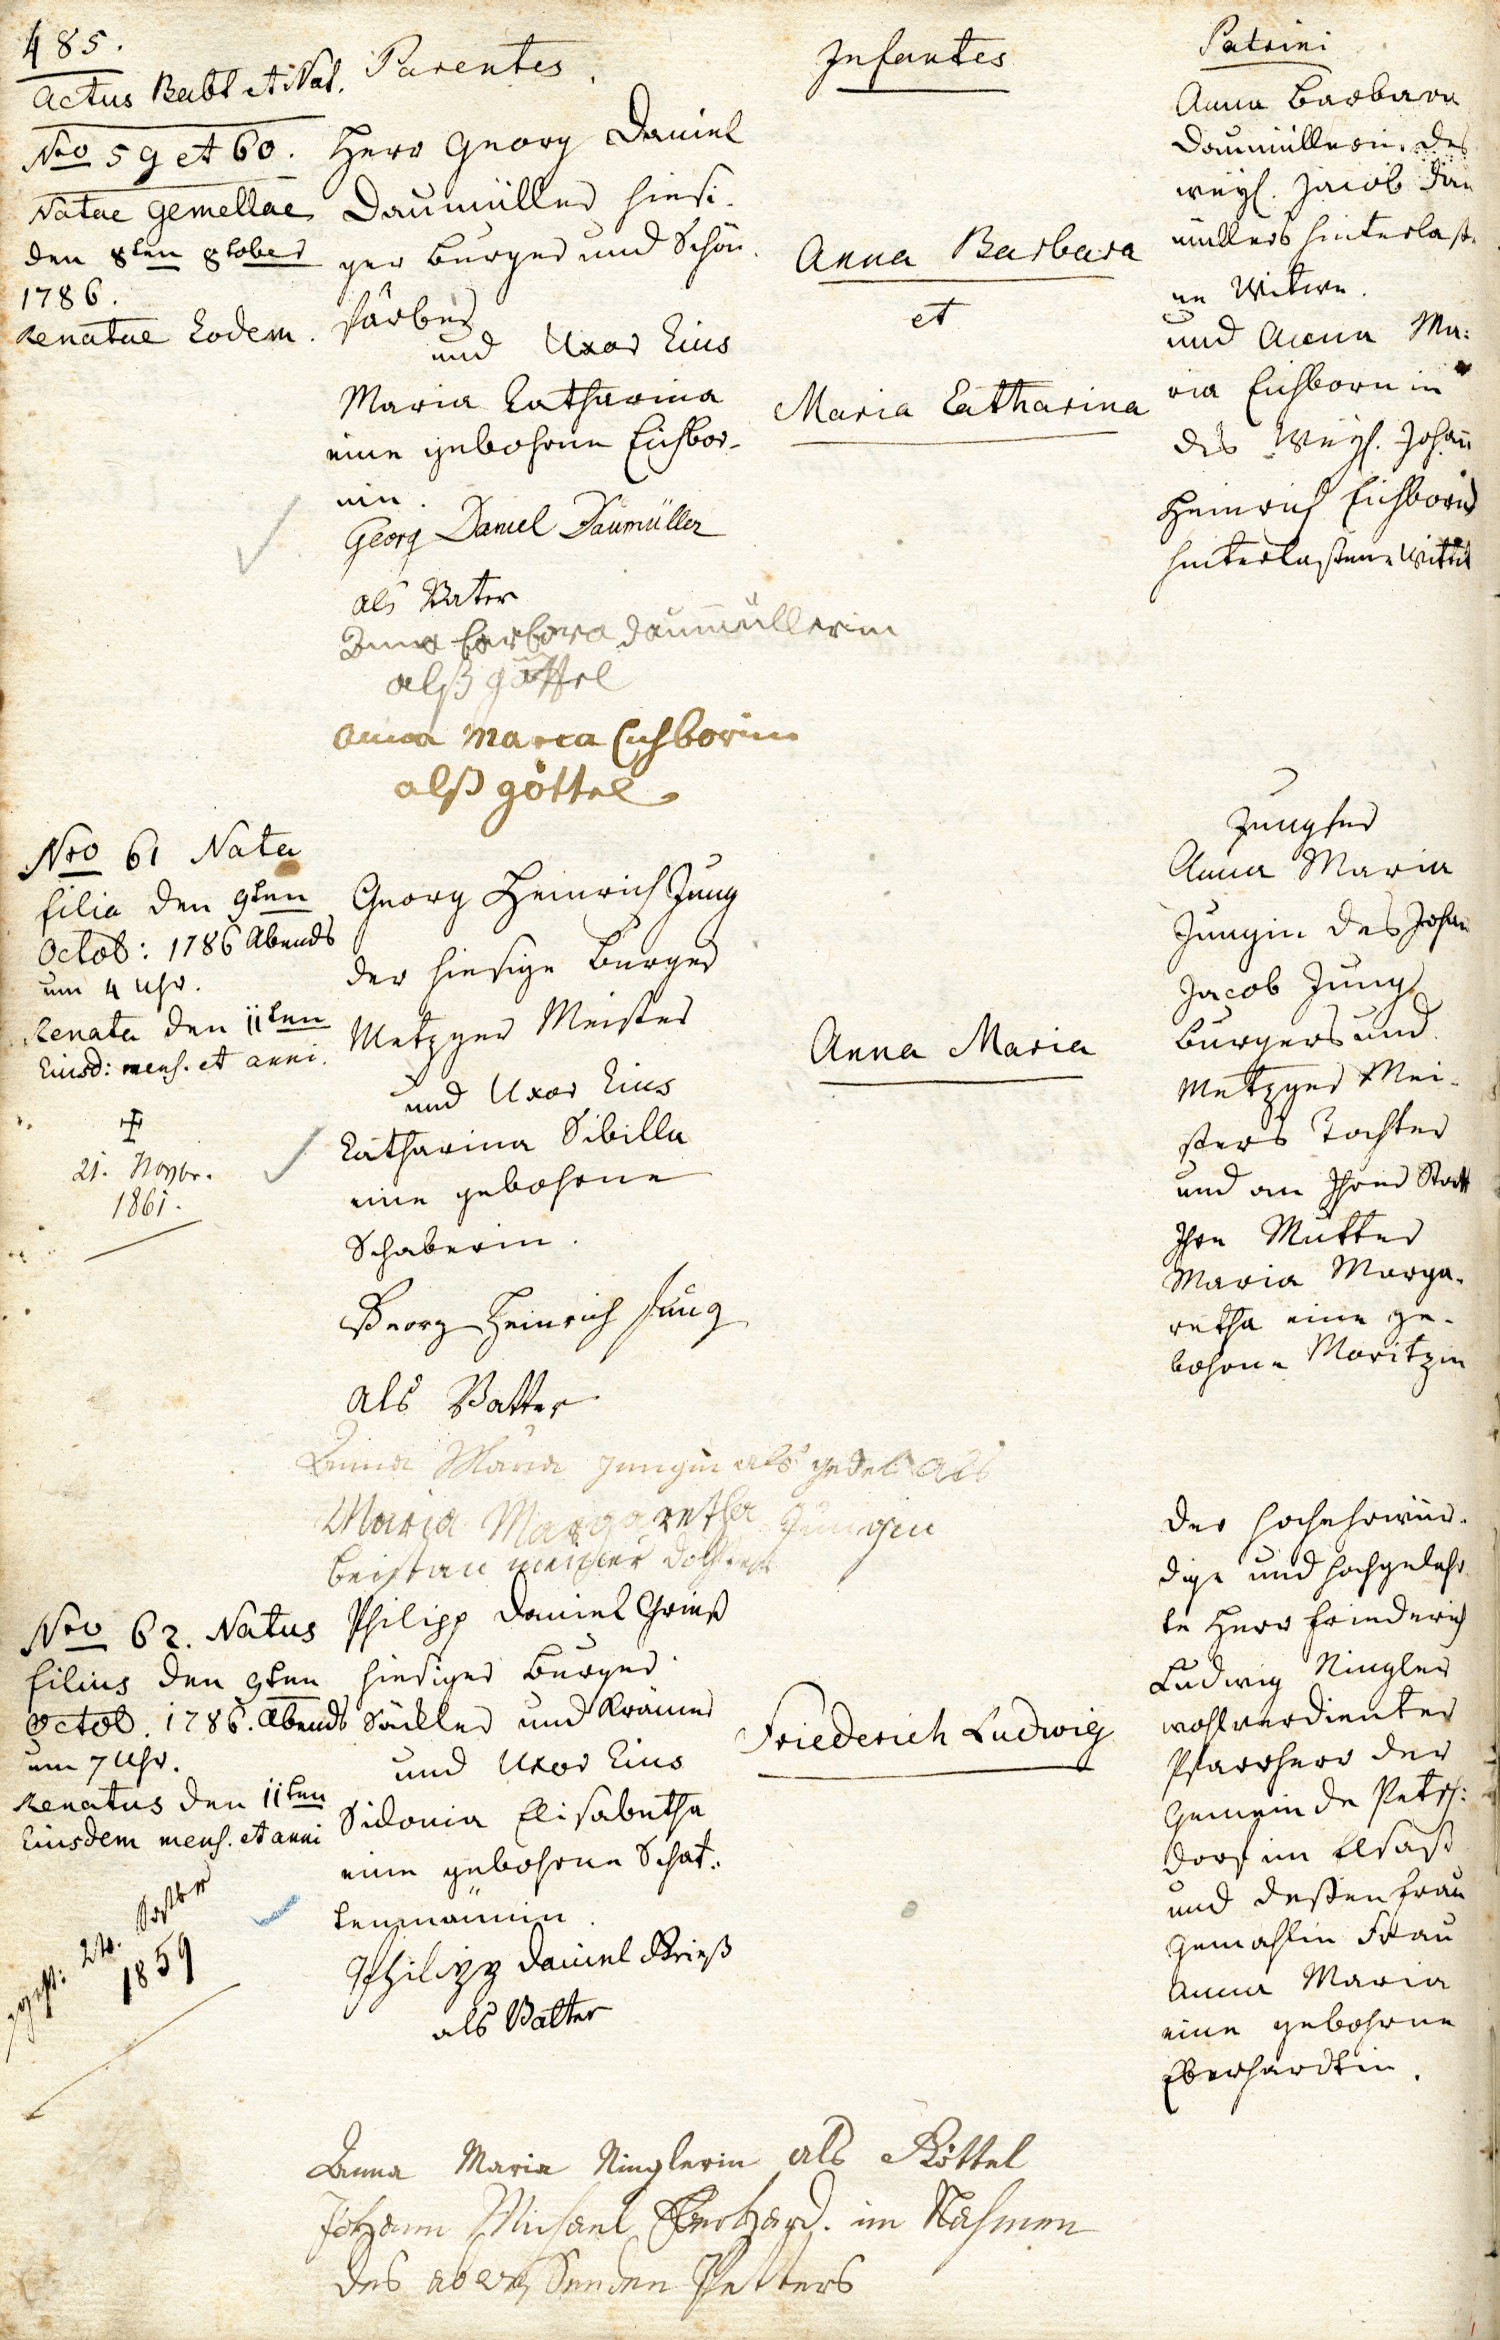 485.
Actus Babt et Nat.
Parentes.
Infantes
Patrini
Nro 59 et 60.
Natae Gemellae
den 8ten 8tober
1786.
Renatae Eodem.
Herr Georg Daniel
Daumüller hiesi-
ger Burger und Schön
färber
und Uxor Eius
Maria Catharina
eine gebohrne Eichbor-
nin.
Georg Daniel Daumüller
als Vater
Anna barbara daumüllerin
alß göttel
Anna Maria Eichborin
alß göttel
Anna Barbara
et
Maria Catharina
Anna Barbara
Daumüllerin, des
weyl. Jacob Dau
müllers hinterlaß-
ne Witwe.
und Anna Ma:
ria Eichbornin
des Weyl. Johann
Heinrich Eichborns
hinterlaßene Wittib
Nro 61 Nata
filia den 9ten
Octob: 1786 Abends
um 4 Uhr.
Renata den 11ten
Eiusd: mens. et anni.
21. Novbr.
1861.
Georg Heinrich Jung
der hiesige Burger
Metzger Meister
und Uxor Eius
Catharina Sibilla
eine gebohrne
Schaberin.
Georg Heinrich Jung
als Vatter
Anna Maria Jungin als gedel als
Maria Margaretha Jungin
beistan meiner dochter
Anna Maria
Jungfer
Anna Maria
Jungin des Johan
Jacob Jung
Burgers und
Metzger Mei-
sters Tochter
und an Ihrer Statt
Ihre Mutter
Maria Marga-
retha eine ge-
bohrne Moritzin
Nro 62. Natus
filius den 9ten
Octob. 1786. Abends
um 7 Uhr.
Renatus den 11ten
Eiusdem mens. et anni
gest: 24.
1859
Philipp Daniel Grieß
hiesiger Burger
Säckler und Krämer
und Uxor Eius
Sidonia Elisabetha
eine gebohrne Schat-
tenmännin.
Philipp Daniel Krieß
als Vatter
Anna Maria Ninglerin als Göttel
Johann Michael Eberhard. im Nahmen
des abweßenden Petters
Friederich Ludwig
Der Hochehrwür-
dige und Hochgelehr
te Herr Friederich
Ludwig Ningler
wohlverdienter
Pfarrherr der
Gemeinde Peters:
dorf im Elsaß
und deßen Frau
Gemahlin Frau
Anna Maria
eine gebohrne
Eberhardtin.